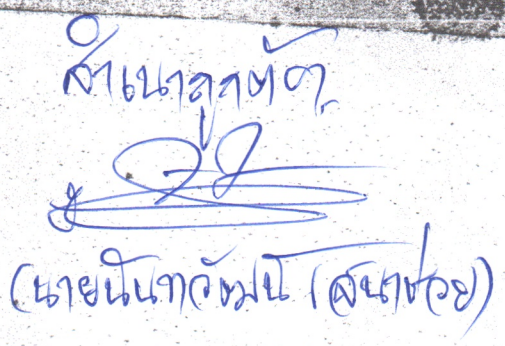 สำเนาถูกต้อง
(นายนันทวัฒน์ เสนาช่วย)